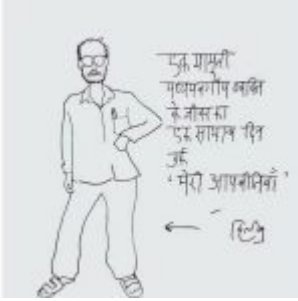 एक मामूली
मध्यमवर्गीय व्यक्ति
के जीवन का
एक सामान्य दिन
उर्फ
"मेरी आपबीतियाँ"